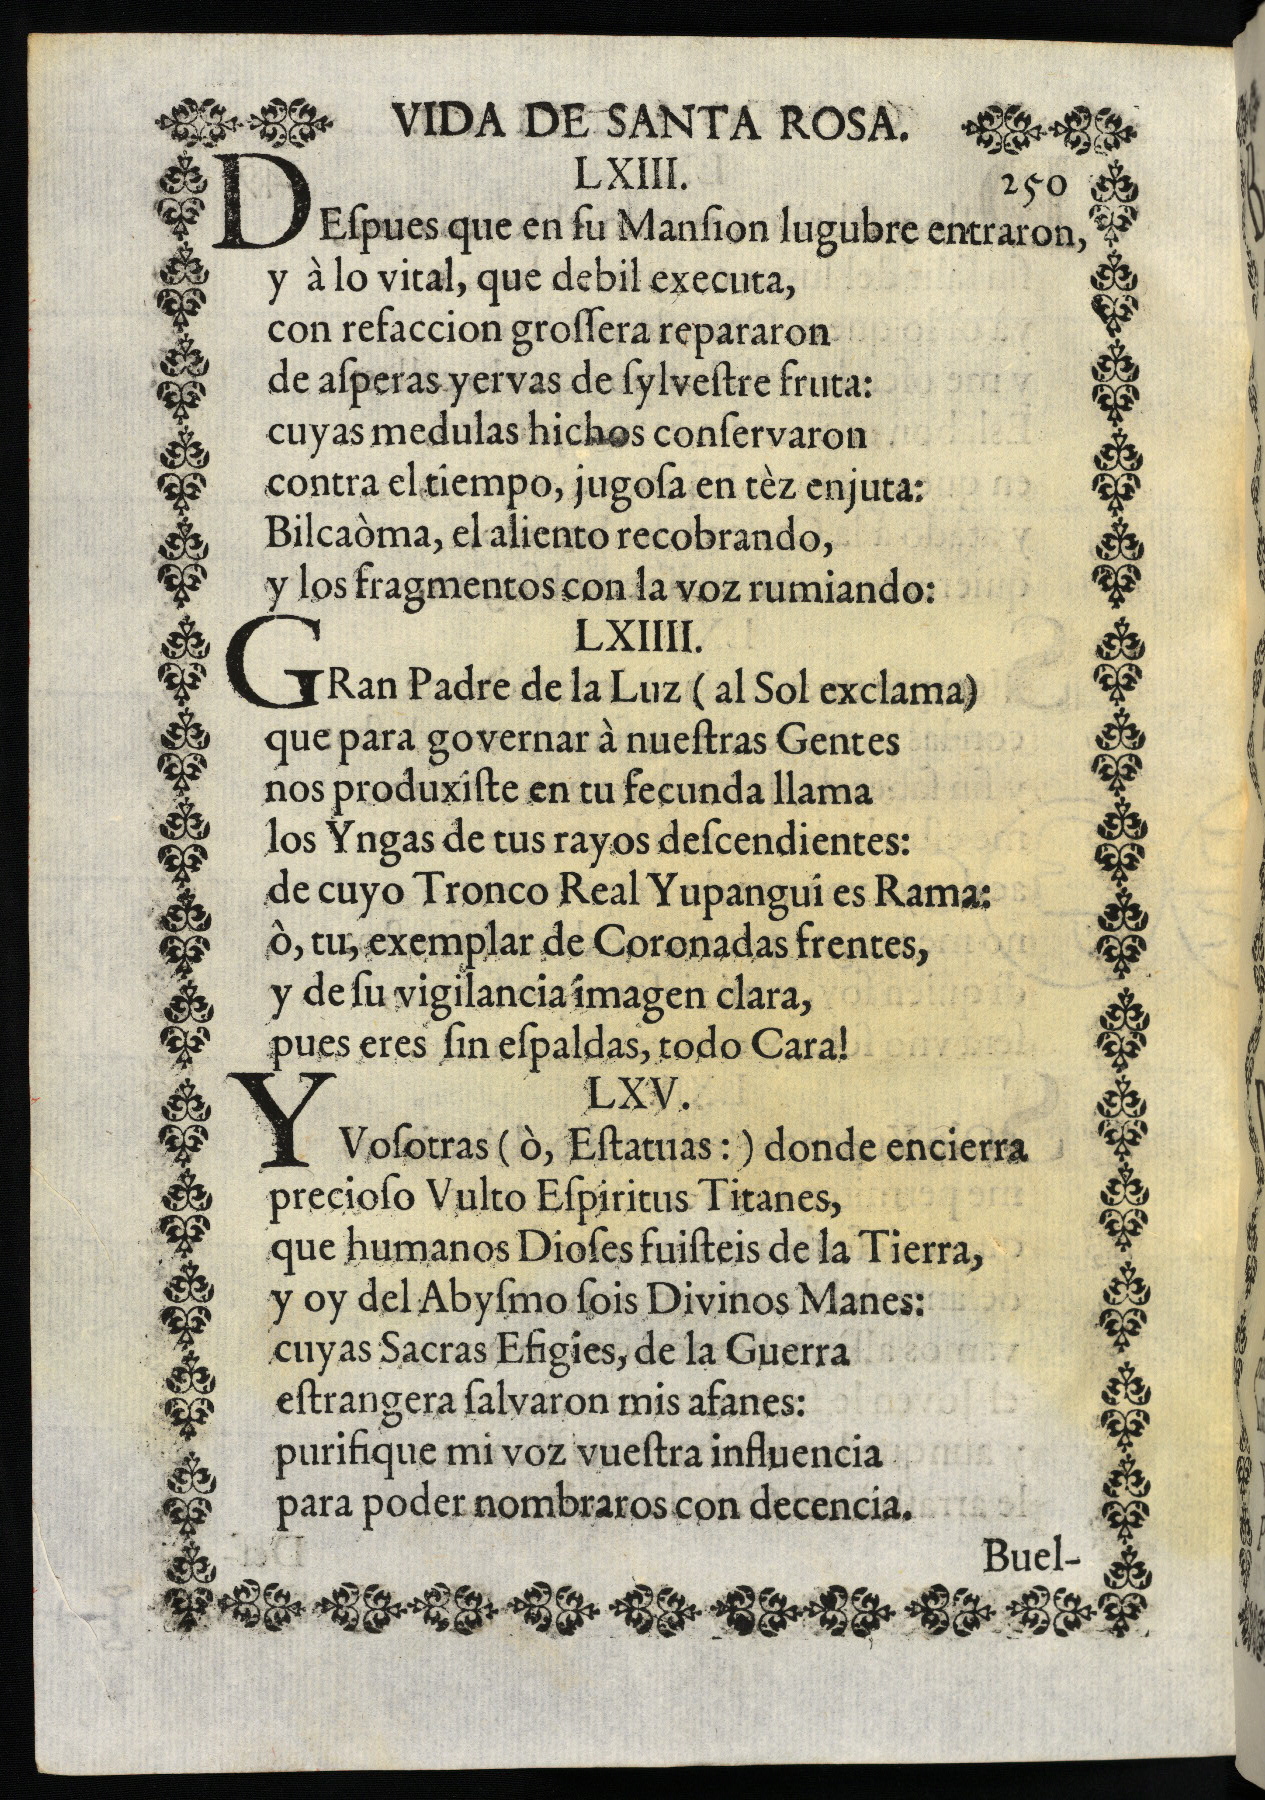 VIDA DE SANTA ROSA.
LXIII.
250
DEſpues que en ſu Manſion lugubre entraron,
y à lo vital, que debil executa,
con refaccion groſſera repararon
de aſperas yervas de ſylveſtre fruta:
cuyas medulas hichos conſervaron
contra el tiempo, jugoſa en tèz enjuta:
Bilcaòma, el aliento recobrando,
y los fragmentos con la voz rumiando:
LXIIII.
GRan Padre de la Luz ( al Sol exclama)
que para governar à nueſtras Gentes
nos produxiſte en tu fecunda llama
los Yngas de tus rayos deſcendientes:
de cuyo Tronco Real Yupangui es Rama:
ò, tu, exemplar de Coronadas frentes,
y de ſu vigilancia imagen clara,
pues eres ſin eſpaldas, todo Cara!
LXV.
Y Voſotras ( ò, Eſtatuas : ) donde encierra
precioſo Vulto Eſpiritus Titanes,
que humanos Dioſes fuiſteis de la Tierra,
y oy del Abyſmo ſois Divinos Manes:
cuyas Sacras Efigies, de la Guerra
eſtrangera ſalvaron mis afanes:
purifique mi voz vueſtra influencia
para poder nombraros con decencia.
Buel-